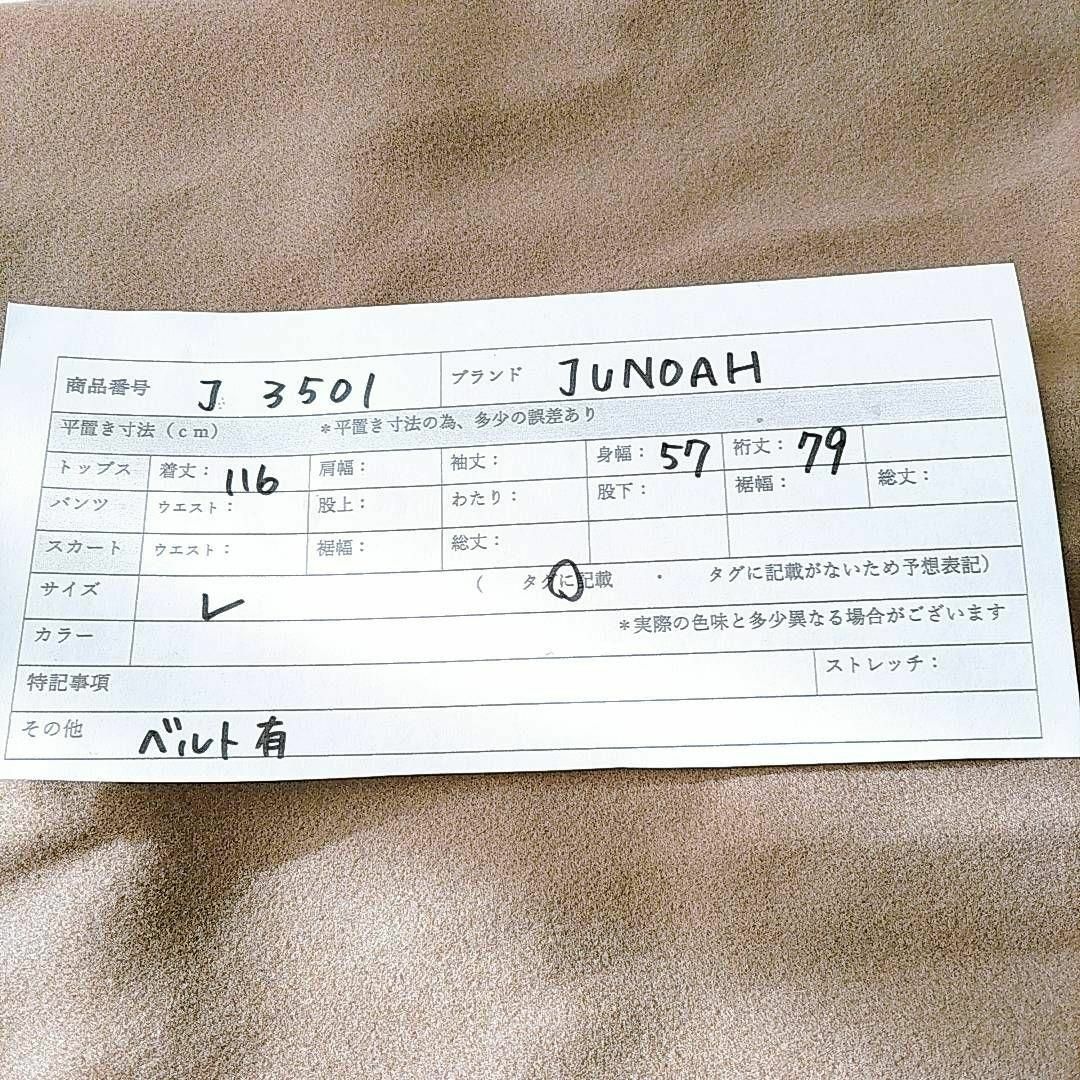 商品番号 J 3501 ブランド JUNOAH
平置き寸法(cm) *平置き寸法の為、多少の誤差あり
トップス 着丈: 116 肩幅: 袖丈: 身幅: 57 裄丈: 79
パンツ ウエスト: 股上: わたり: 股下: 裾幅: 総丈:
スカート ウエスト: 裾幅: 総丈:
サイズ L ( タグに記載 ・ タグに記載がないため予想表記)
カラー *実際の色味と多少異なる場合がございます
特記事項 ストレッチ:
その他 ベルト有